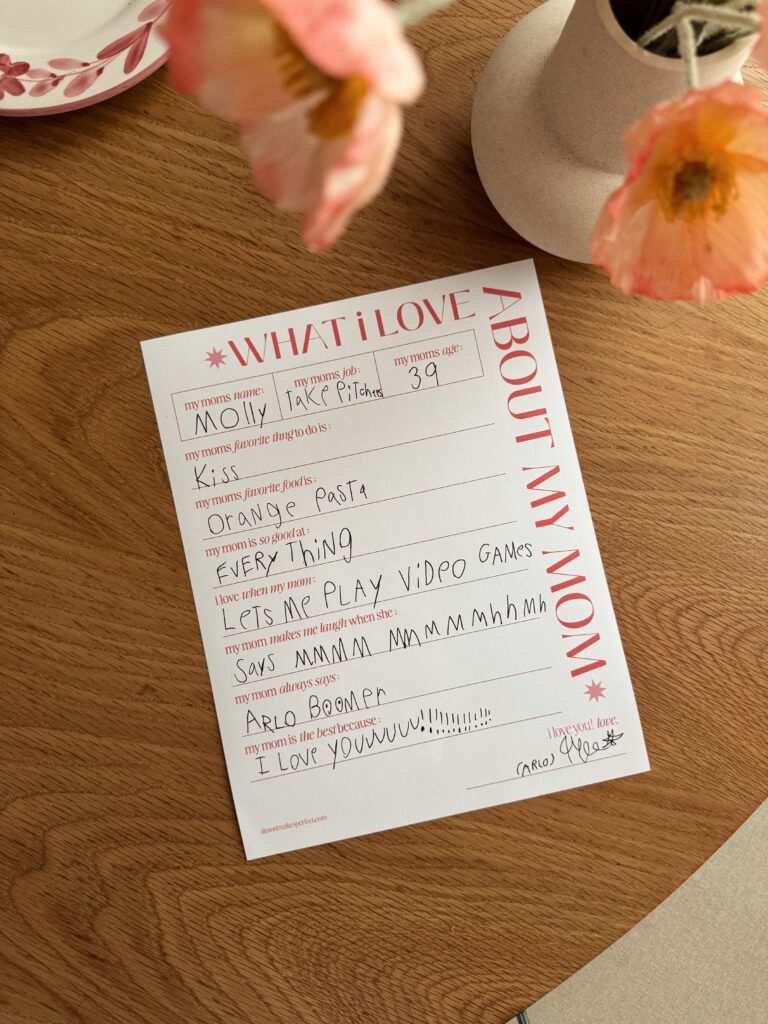 WHAT i LOVE ABOUT MY MOM
my moms name:
MOlly
my moms job:
Take PiTchers
my moms age:
39
my moms favorite thng to do is:
Kiss
my moms favorite food is:
OraNge PasTa
my mom is so good at:
EVERY ThiNg
i love when my mom:
LeTs Me PLAY ViDeO GAMes
my mom makes me laugh when she:
Says MMMM MMMMMhhMh
my mom always says:
ARLO BOOMer
my mom is the best because:
I Love YOUUUUU!!!!!!!!!!!!
i love you! love,
(ARLO)
almostmakesperfect.com